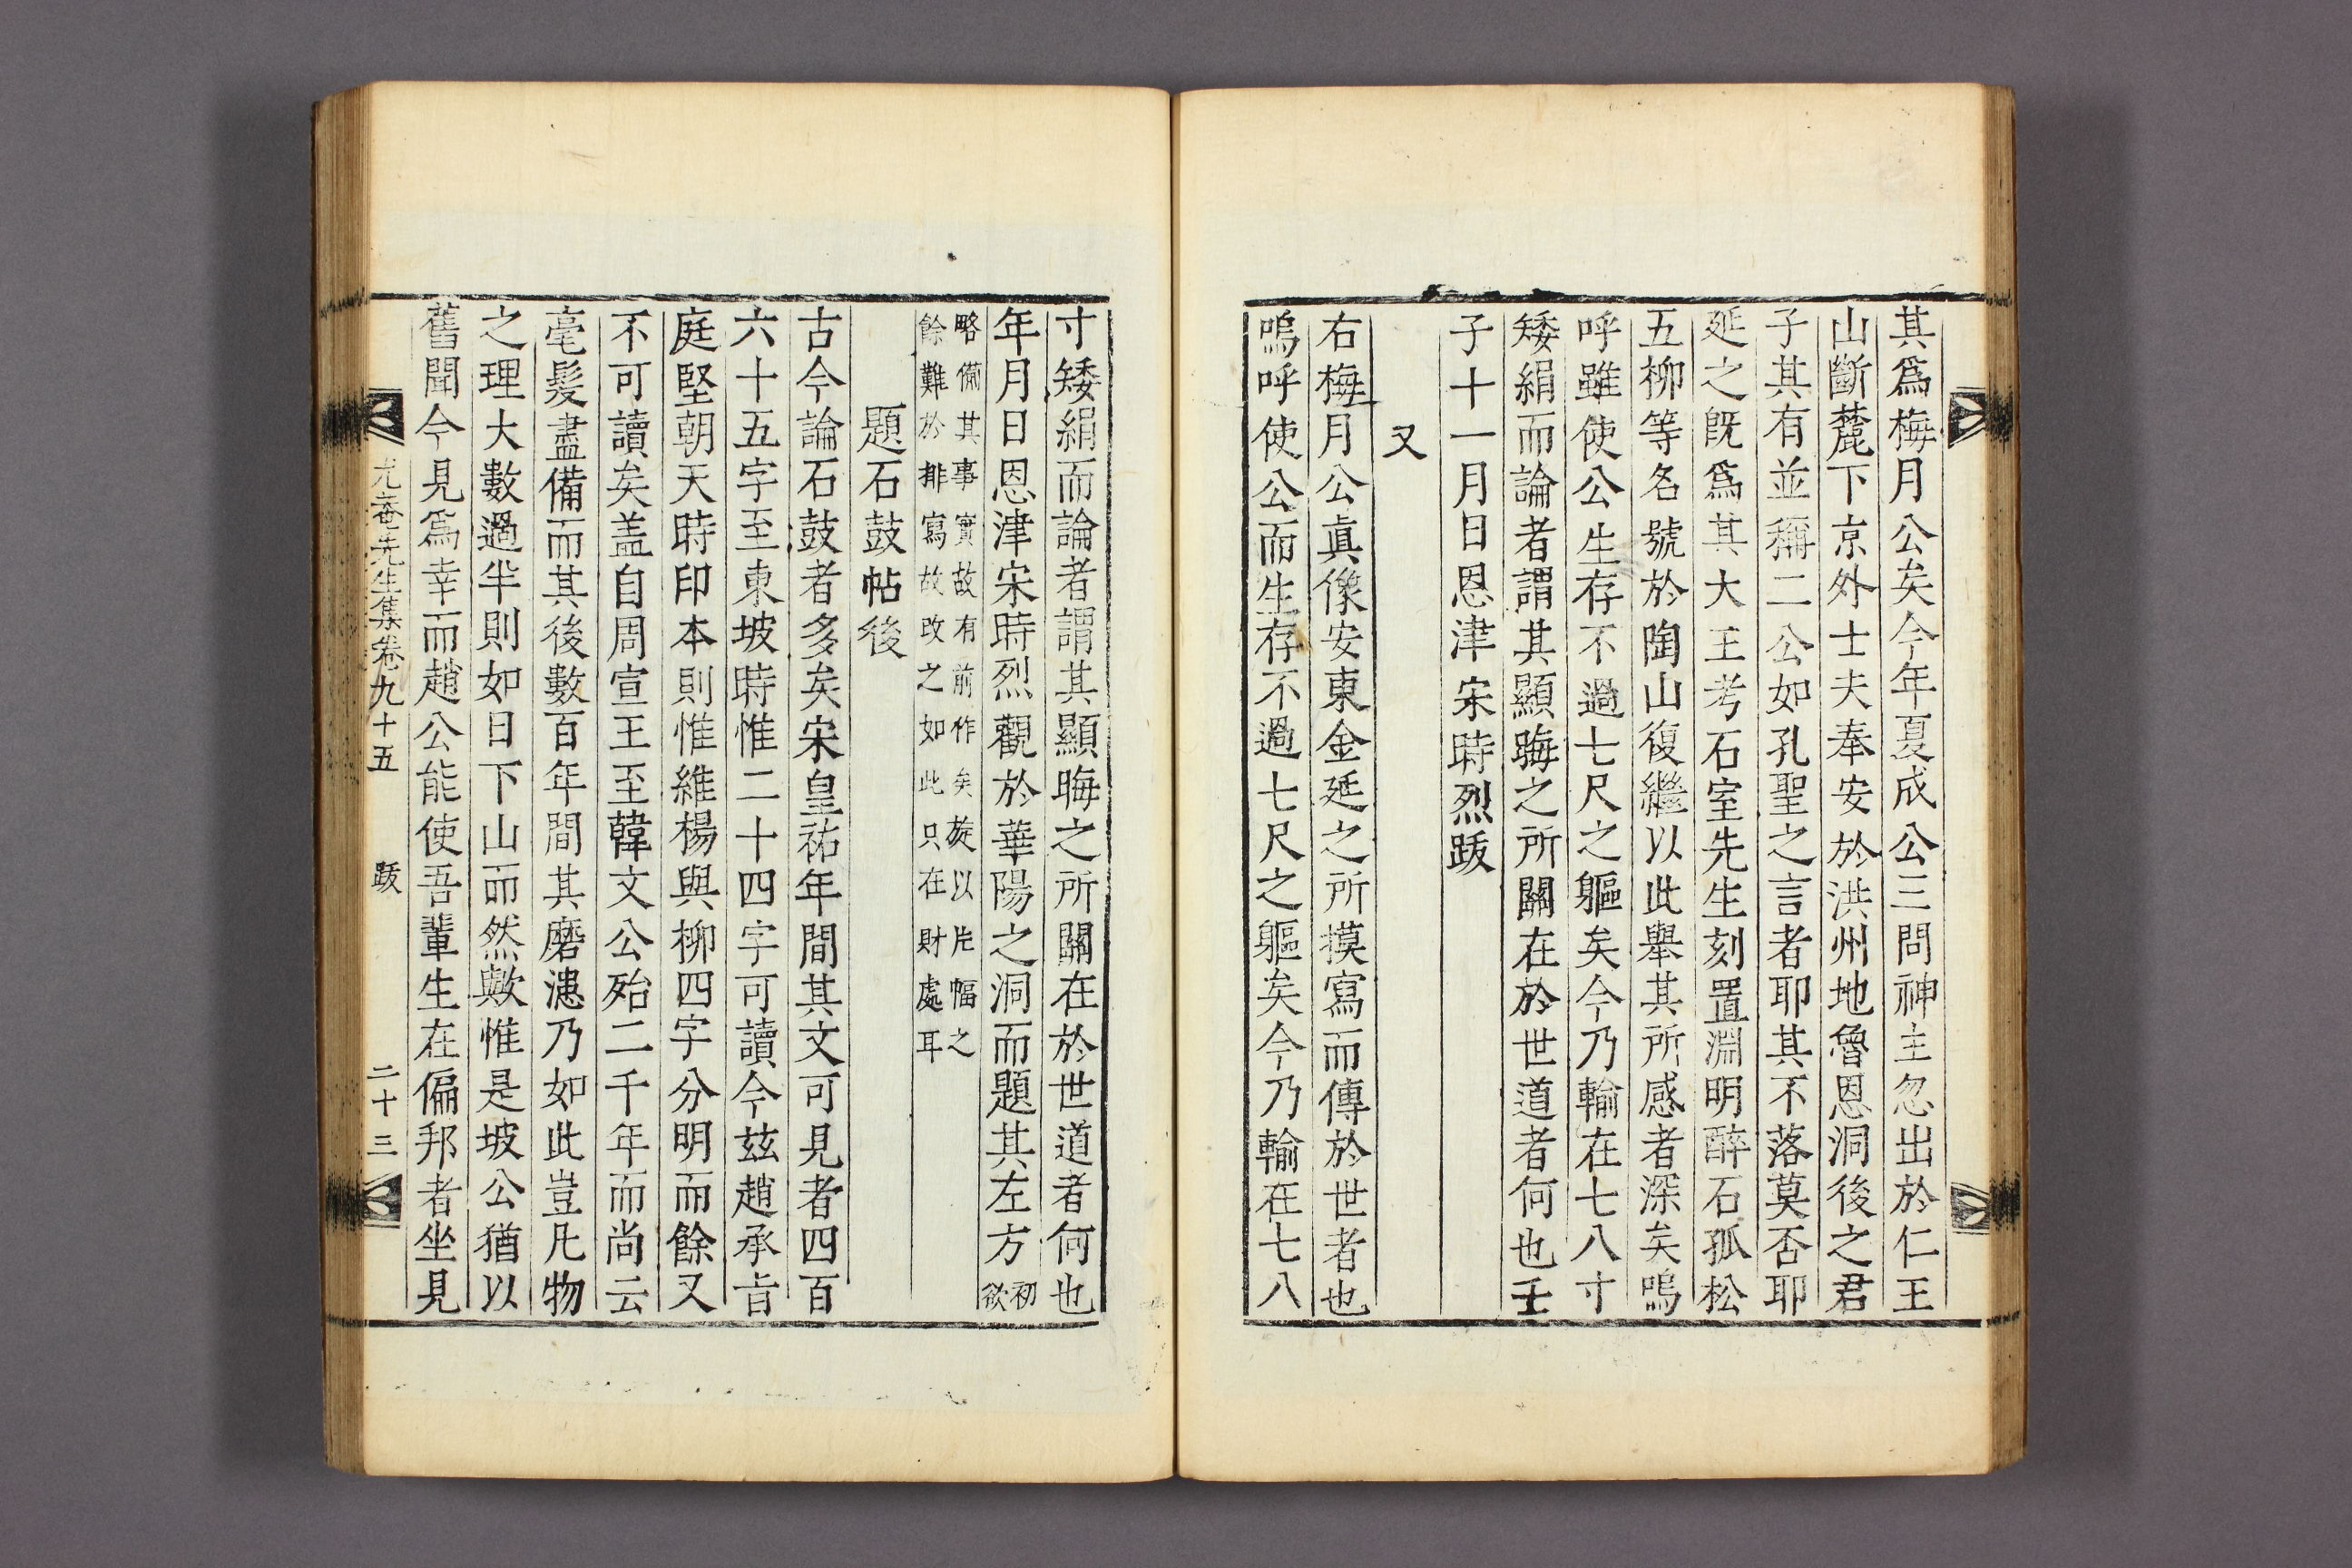 其爲梅月公矣今年夏成公三問神主忽出於仁王
山斷麓下京外士夫奉安於洪州地魯恩洞後之君
子其有並稱二公如孔聖之言者耶其不落莫否耶
延之旣爲其大王考石室先生刻置淵明醉石孤松
五柳等名號於陶山復繼以此擧其所感者深矣嗚
呼雖使公生存不過七尺之軀矣今乃輸在七八寸
矮絹而論者謂其顯晦之所關在於世道者何也壬
子十一月日恩津宋時烈跋
又
右梅月公眞像安東金延之所摸寫而傳於世者也
嗚呼使公而生存不過七尺之軀矣今乃輸在七八
寸矮絹而論者謂其顯晦之所關在於世道者何也
年月日恩津宋時烈觀於華陽之洞而題其左方初欲
略備其事實故有前作矣旋以片幅之
餘難於排寫故改之如此只在財處耳
題石鼓帖後
古今論石鼓者多矣宋皇祐年間其文可見者四百
六十五字至東坡時惟二十四字可讀今玆趙承旨
庭堅朝天時印本則惟維楊與柳四字分明而餘又
不可讀矣盖自周宣王至韓文公殆二千年而尚云
毫髮盡備而其後數百年間其磨漶乃如此豈凡物
之理大數過半則如日下山而然歟惟是坡公猶以
舊聞今見爲幸而趙公能使吾輩生在偏邦者坐見
尤菴先生集卷九十五　跋　二十三